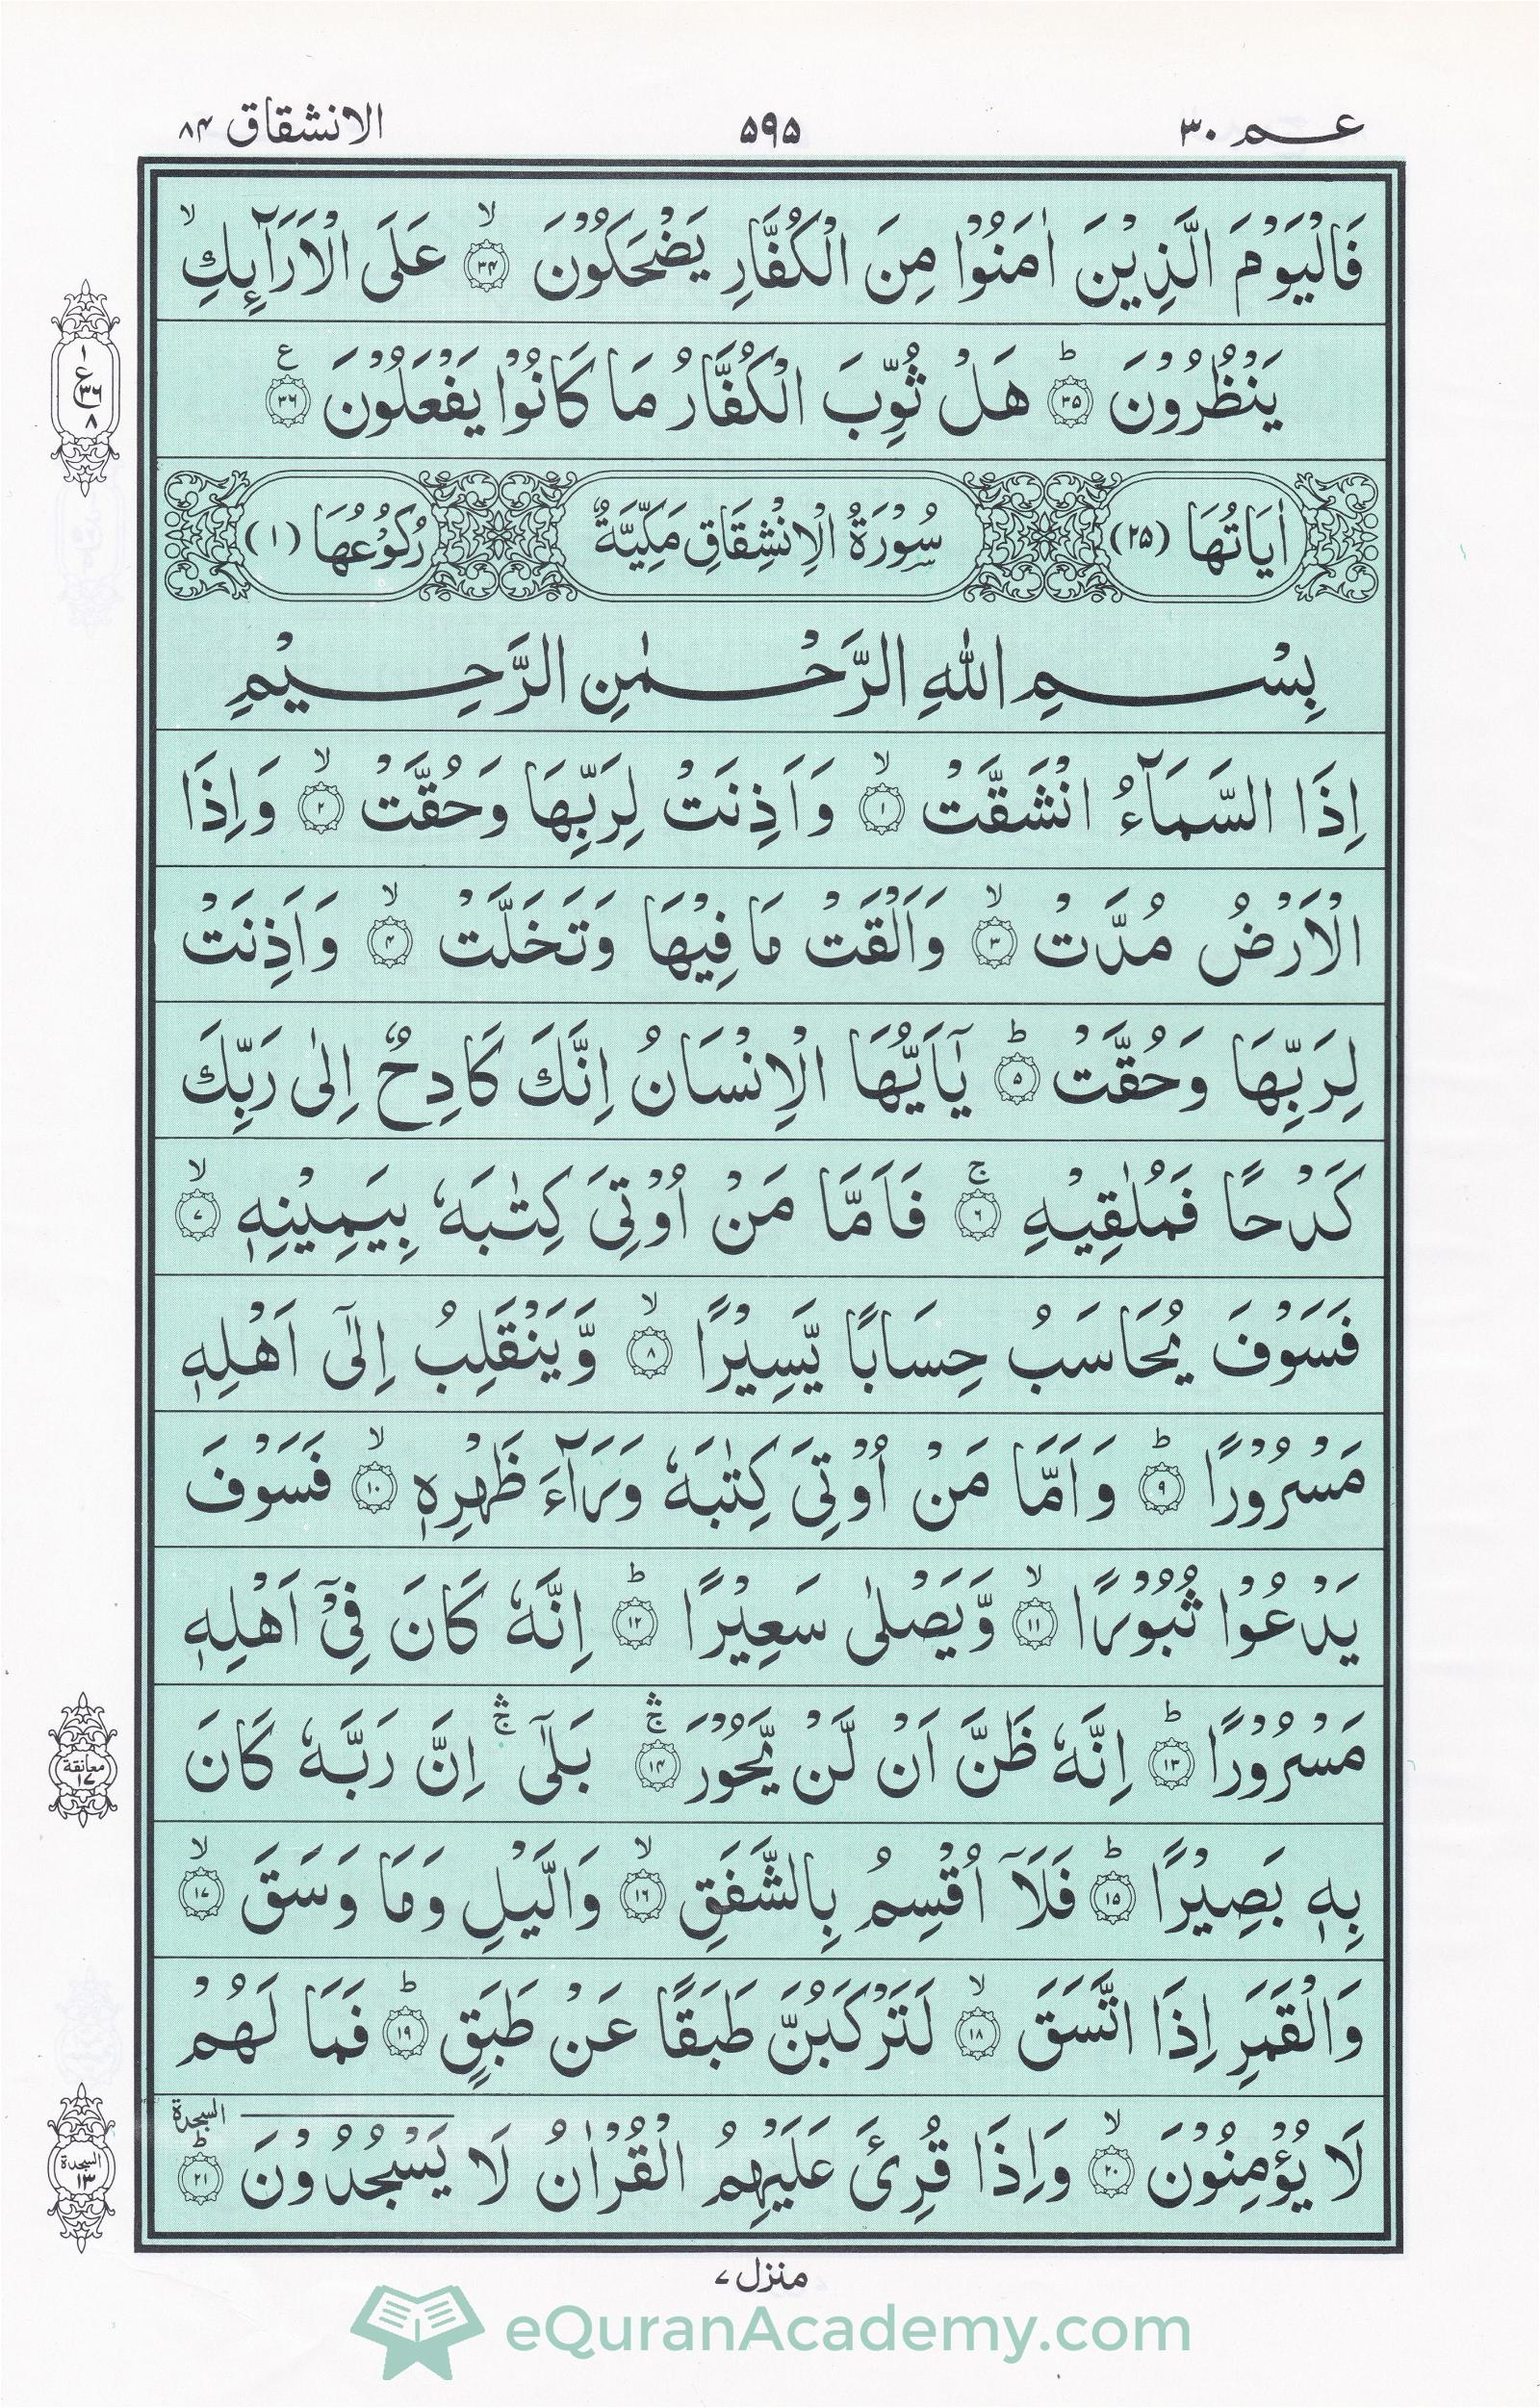 عـم ٣٠
٥٩٥
الانشقاق ٨٤
فَالْيَوْمَ الَّذِيْنَ اٰمَنُوْا مِنَ الْكُفَّارِ يَضْحَكُوْنَ ۙ‏﴿۳۴﴾ عَلَى الْاَرَآٮِٕكِ ۙ
يَنْظُرُوْنَ ؕ‏﴿۳۵﴾ هَلْ ثُوِّبَ الْكُفَّارُ مَا كَانُوْا يَفْعَلُوْنَ ﴿۳۶﴾ ع
۱ ع ۳۶ ۸
اٰيَاتُهَا (۲۵)
سُوْرَةُ الْاِنْشِقَاقِ مَكِّيَّةٌ
رُكُوْعُهَا (۱)
بِسْمِ اللهِ الرَّحْمٰنِ الرَّحِيْمِ
اِذَا السَّمَآءُ انْشَقَّتْ ۙ‏﴿۱﴾ وَاَذِنَتْ لِرَبِّهَا وَحُقَّتْ ۙ‏﴿۲﴾ وَاِذَا
الْاَرْضُ مُدَّتْ ۙ‏﴿۳﴾ وَاَلْقَتْ مَا فِيْهَا وَتَخَلَّتْ ۙ‏﴿۴﴾ وَاَذِنَتْ
لِرَبِّهَا وَحُقَّتْ ؕ‏﴿۵﴾ يٰۤاَيُّهَا الْاِنْسَانُ اِنَّكَ كَادِحٌ اِلٰى رَبِّكَ
كَدْحًا فَمُلٰقِيْهِ ۚ‏﴿۶﴾ فَاَمَّا مَنْ اُوْتِىَ كِتٰبَهٗ بِيَمِيْنِهٖ ۙ‏﴿۷﴾
فَسَوْفَ يُحَاسَبُ حِسَابًا يَّسِيْرًا ۙ‏﴿۸﴾ وَّيَنْقَلِبُ اِلٰٓى اَهْلِهٖ
مَسْرُوْرًا ؕ‏﴿۹﴾ وَاَمَّا مَنْ اُوْتِىَ كِتٰبَهٗ وَرَآءَ ظَهْرِهٖ ۙ‏﴿۱۰﴾ فَسَوْفَ
يَدْعُوْا ثُبُوْرًا ۙ‏﴿۱۱﴾ وَّيَصْلٰى سَعِيْرًا ؕ‏﴿۱۲﴾ اِنَّهٗ كَانَ فِىْۤ اَهْلِهٖ
مَسْرُوْرًا ؕ‏﴿۱۳﴾ اِنَّهٗ ظَنَّ اَنْ لَّنْ يَّحُوْرَ ۛۚ‏﴿۱۴﴾ بَلٰٓى ۛۚ اِنَّ رَبَّهٗ كَانَ
معانقة ۱۷
بِهٖ بَصِيْرًا ؕ‏﴿۱۵﴾ فَلَاۤ اُقْسِمُ بِالشَّفَقِ ۙ‏﴿۱۶﴾ وَالَّيْلِ وَمَا وَسَقَ ۙ‏﴿۱۷﴾
وَالْقَمَرِ اِذَا اتَّسَقَ ۙ‏﴿۱۸﴾ لَتَرْكَبُنَّ طَبَقًا عَنْ طَبَقٍ ؕ‏﴿۱۹﴾ فَمَا لَهُمْ
لَا يُؤْمِنُوْنَ ۙ‏﴿۲۰﴾ وَاِذَا قُرِئَ عَلَيْهِمُ الْقُرْاٰنُ لَا يَسْجُدُوْنَ ؕ‏﴿۲۱﴾ السجدة
السجدة ۱۳
منزل ۷
eQuranAcademy.com